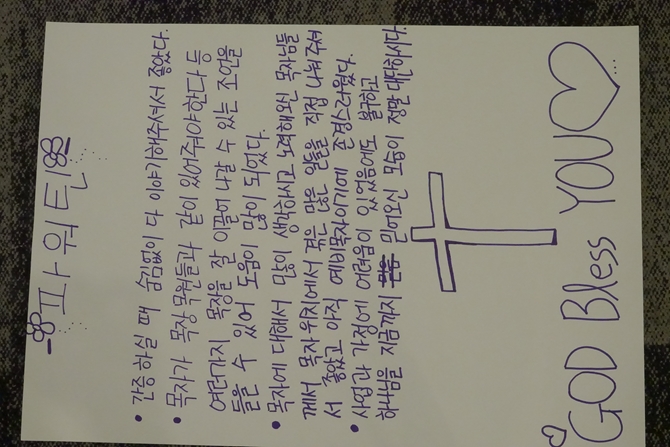 파워틴
• 간증하실 때 숨김없이 다 이야기해주셔서 좋았다.
• 목자가 목장 목원들과 같이 있어줘야한다 등
여러가지 목장을 잘 이끌어 나갈 수 있는 조언을
들을 수 있어 도움이 많이 되었다.
• 목자에 대해서 많이 생각하시고 노력해오신 목자님들
께서 목자 위치에서 겪은 많은 일들을 직접 나눠주셔
서 좋았고 아직 예비목자이기에 존경스러웠다.
• 사업과 가정에 어려움이 있었음에도 불구하고
하나님을 지금까지 믿어오신 모습이 정말 대단하시다.
GOD Bless YOU♡...